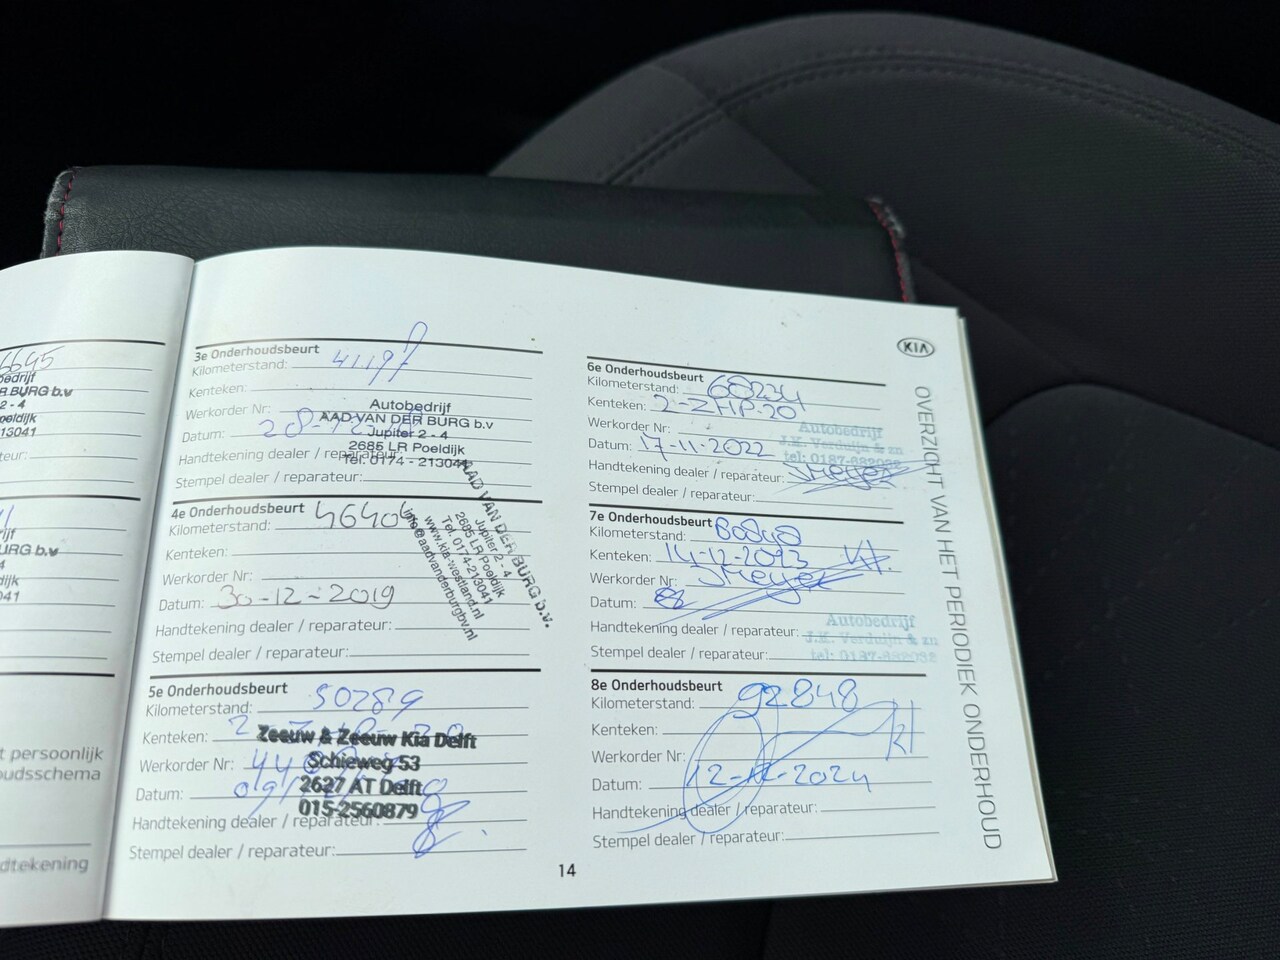 6645
R BURG b.v
2 - 4
13041
URG b.v
t persoonlijk
oudsschema
dtekening
3e Onderhoudsbeurt
Kilometerstand:
Kenteken:
Werkorder Nr:
Datum:
Handtekening dealer / reparateur:
Stempel dealer / reparateur:
Autobedrijf
AAD VAN DER BURG b.v
Jupiter 2 - 4
2685 LR Poeldijk
Tel. 0174 - 213041
4e Onderhoudsbeurt
Kilometerstand: 46404
Kenteken:
Werkorder Nr:
Datum: 30-12-2019
Handtekening dealer / reparateur:
Stempel dealer / reparateur:
AAD VAN DER BURG b.v.
Jupiter 2 - 4
2685 LR Poeldijk
Tel. 0174-213041
www.kia-westland.nl
info@aadvanderburgbv.nl
5e Onderhoudsbeurt
Kilometerstand: 50289
Kenteken:
Werkorder Nr:
Datum:
Handtekening dealer / reparateur:
Stempel dealer / reparateur:
Zeeuw & Zeeuw Kia Delft
Schieweg 53
2627 AT Delft
015-2560879
14
KIA
6e Onderhoudsbeurt
Kilometerstand: 68234
Kenteken: 2-ZHP-20
Werkorder Nr:
Datum: 17-11-2022
Handtekening dealer / reparateur:
Stempel dealer / reparateur:
Autobedrijf
J.K. Verduijn & zn
tel: 0187-682038
7e Onderhoudsbeurt
Kilometerstand:
Kenteken: 14-12-2023
Werkorder Nr:
Datum:
Handtekening dealer / reparateur:
Stempel dealer / reparateur:
Autobedrijf
J.K. Verduijn & zn
tel: 0187-682038
8e Onderhoudsbeurt
Kilometerstand: 92848
Kenteken:
Werkorder Nr:
Datum: 12-12-2024
Handtekening dealer / reparateur:
Stempel dealer / reparateur:
OVERZICHT VAN HET PERIODIEK ONDERHOUD